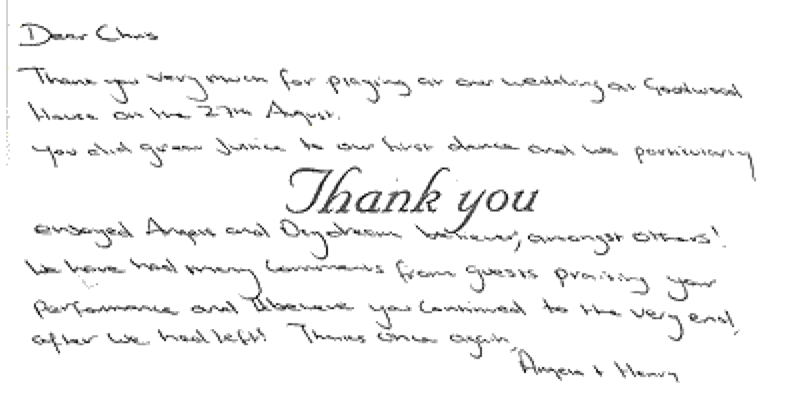 Dear Chris
Thank you very much for playing at our wedding at Goodwood
House on the 27th August.
You did great justice to our first dance and we particularly
Thank you
enjoyed Angels and Daydream believer, amongst others!
We have had many comments from guests praising your
Performance and I believe you continued to the very end,
after we had left! Thanks once again,
Angela + Henry